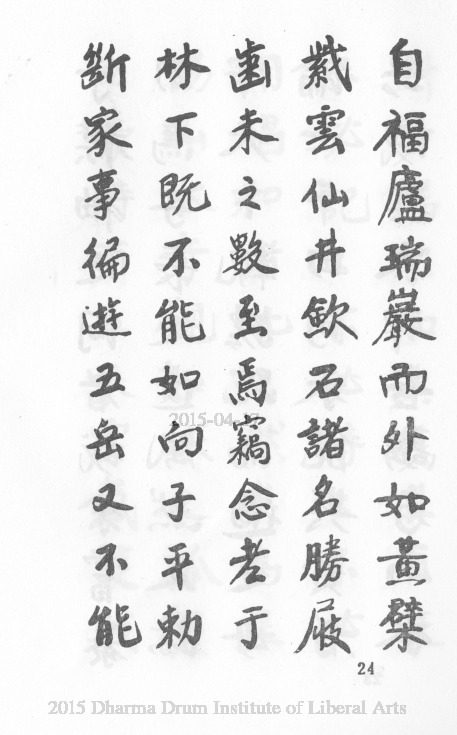 自福廬瑞巖而外如黃檗
雲仙井石諸名勝屐
齒未之數至焉竊念老于
林下既不能如向子平勅
斷家事徧遊五岳又不能
24
2015-04-
2015 Dharma Drum Institute of Liberal Arts